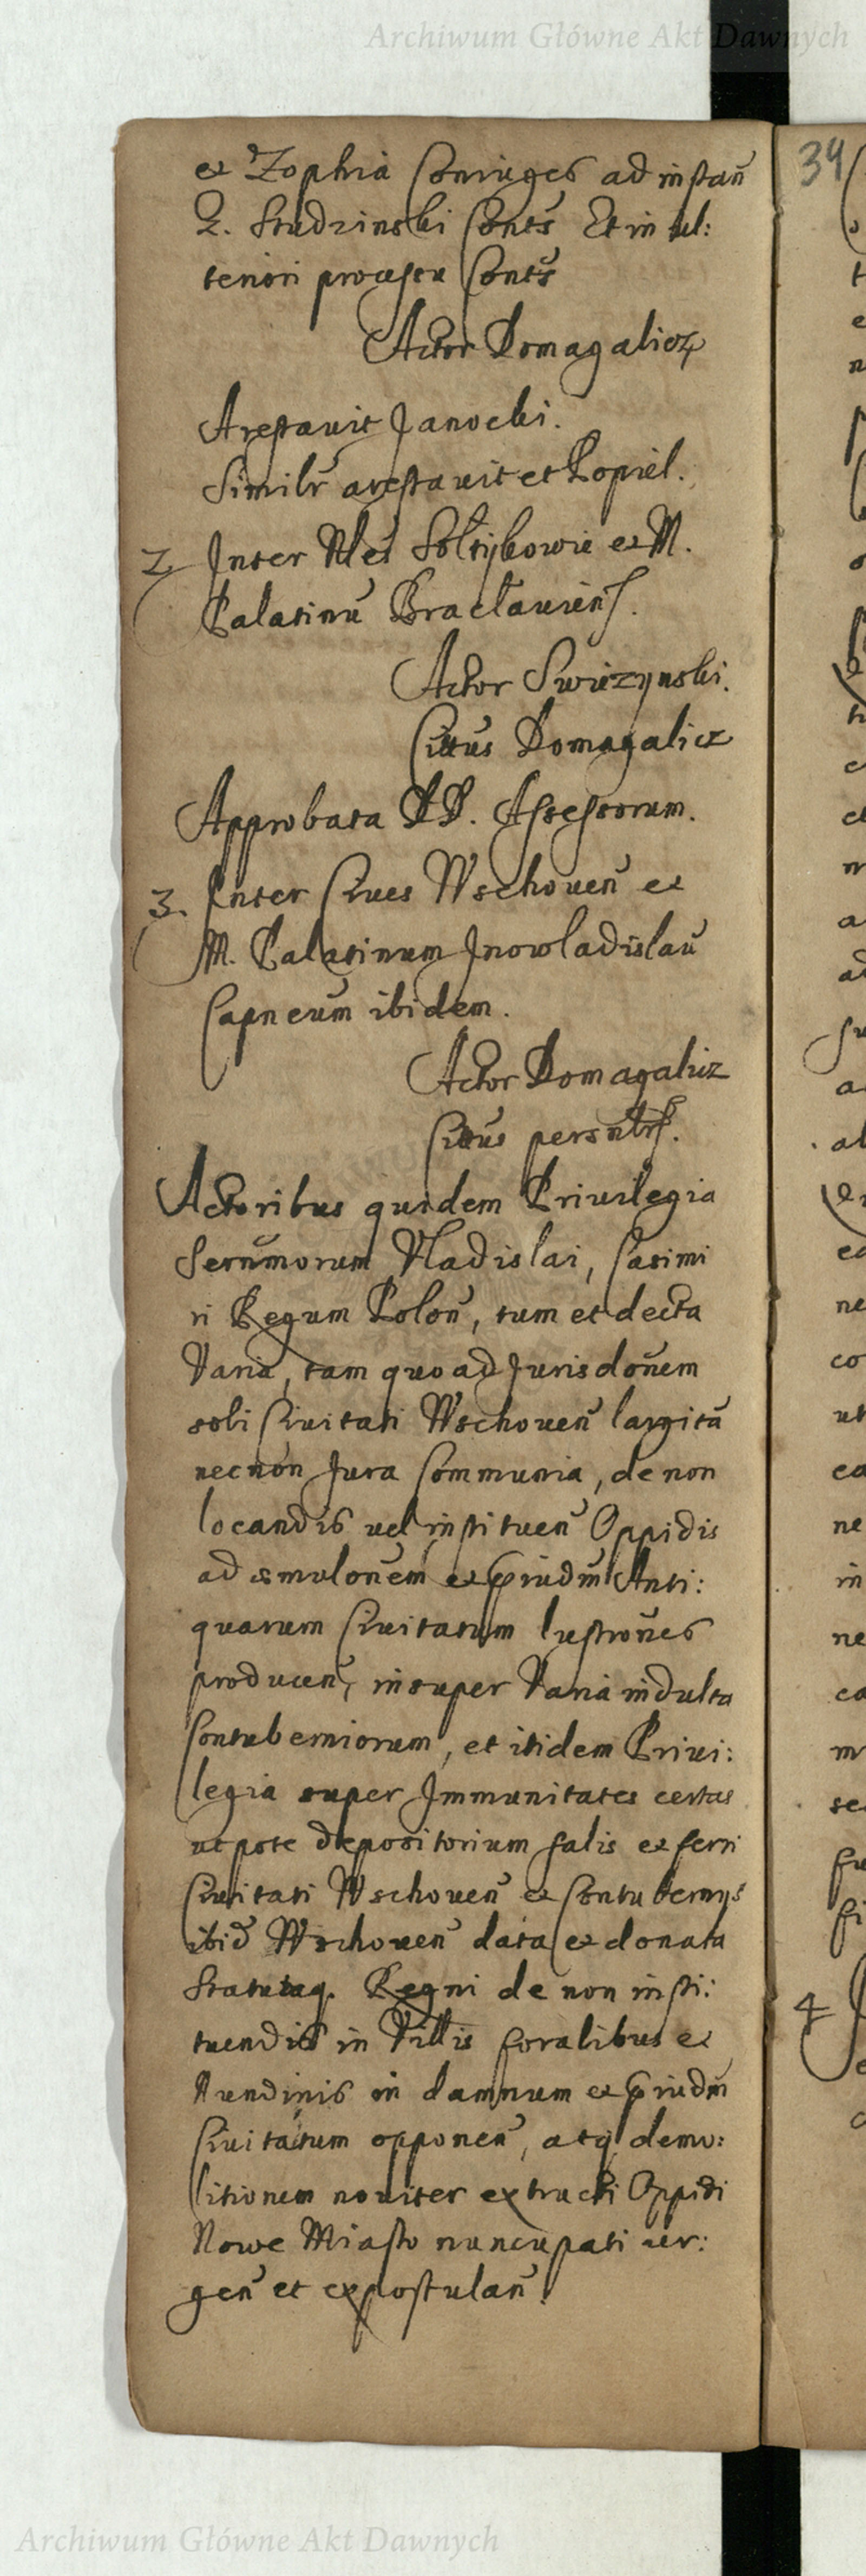 Archiwum Główne Akt Dawnych
34
et Zophia Coniuges ad instan̄
G. Studzinski Conts Et in ul:
teriori processu Conts
Actor Domagalicz
Arestauit Janocki.
Similr arestauit et Popiel.
2. Inter Nles Soltykowie et M.
Palatinū Braclauiens.
Actor Swiezynski.
Cittus Domagalicz
Approbata DD. Assessorum.
3. Inter Ciues Wschouen̄ et
M. Palatinum Jnowladislau̅
Capneum̄ ibidem.
Actor Domagalicz
Cittus persnlis.
Actoribus quidem Priuilegia
Serūmorum Vladislai, Casimi
ri Regum Polon̄, tum et decta
Varia, tam quo ad Jurisdon̄em
soli Ciuitati Wschouen̄ largita
necnon Jura Communia, de non
locandis uel instituen̄ Oppidis
ad æmulon̄em et priudm̄ Anti:
quarum Ciuitatum lustron̄es
producen̄, insuper Varia indulta
Contuberniorum, et itidem Priui:
legia super Jmmunitates certas
utpote depositorium salis et ferri
Ciuitati Wschouen̄ et Contubernys
ibid Wschouen̄ data et donata
Statutaq. Regni de non insti:
tuendis in Villis foralibus et
Nundinis in damnum et priudm̄
Ciuitatum opponen̄, atq demo:
litionem nouiter extructi Oppidi
Nowe Miasto nuncupati ur:
gen̄ et expostulan̄.
4
Archiwum Główne Akt Dawnych